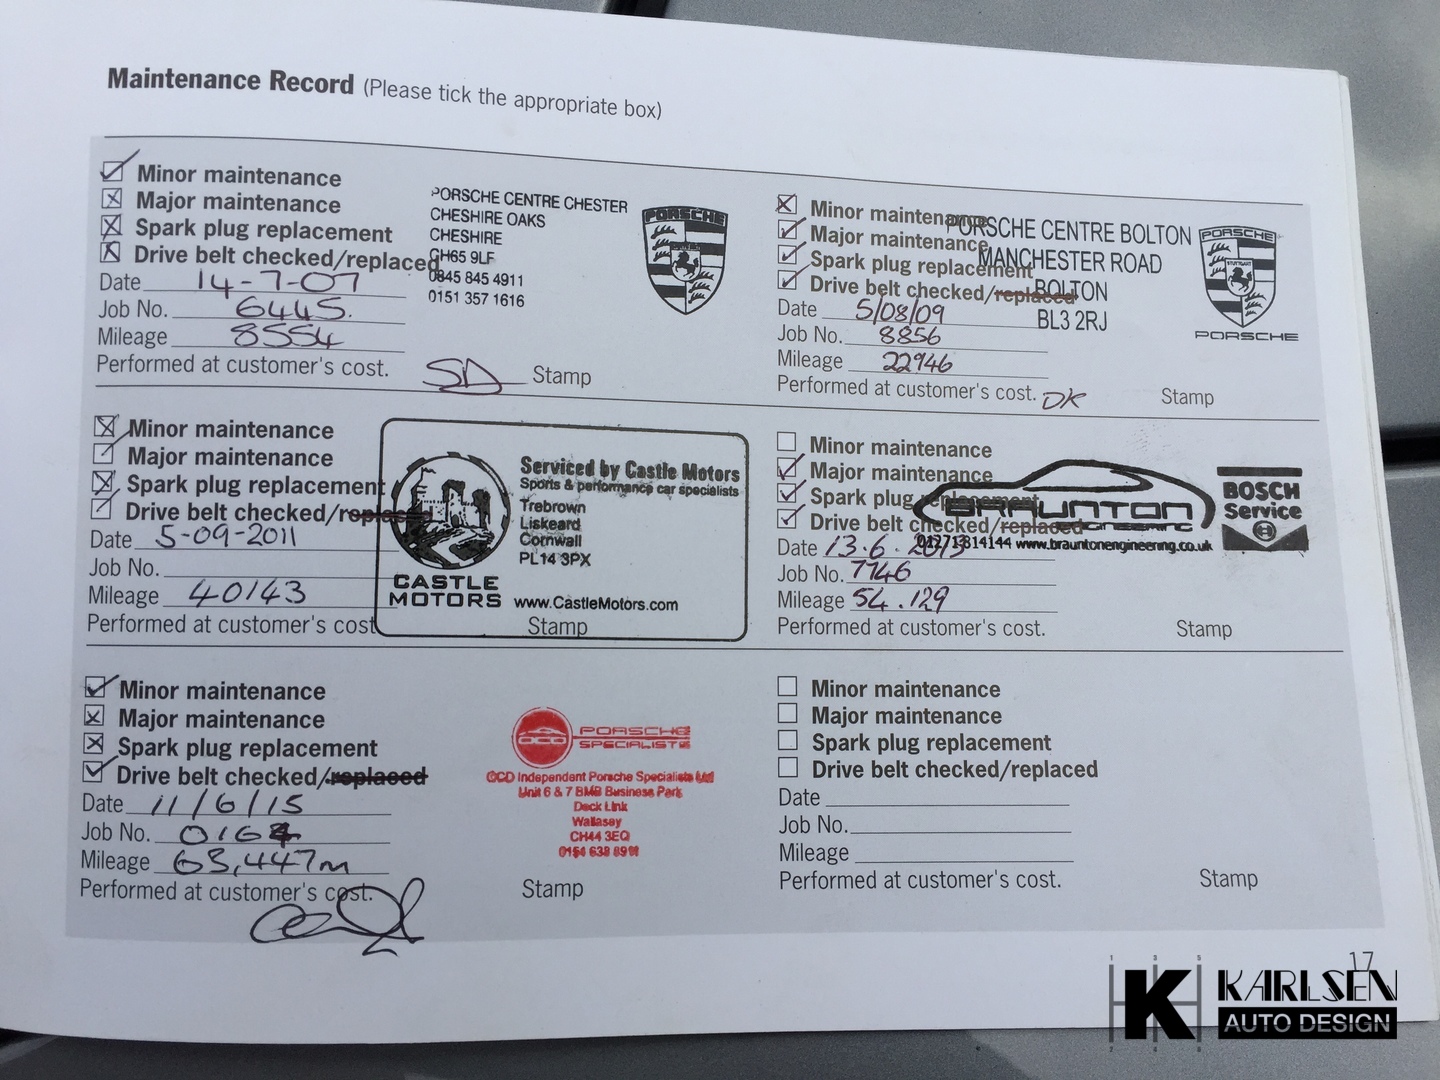 Maintenance Record (Please tick the appropriate box)
Minor maintenance
Major maintenance
Spark plug replacement
Drive belt checked/replaced
Date 14-7-07
Job No. 6445.
Mileage 8554
Performed at customer's cost.
SD
Stamp
PORSCHE CENTRE CHESTER
CHESHIRE OAKS
CHESHIRE
CH65 9LF
0845 845 4911
0151 357 1616
PORSCHE
Minor maintenance
Major maintenance
Spark plug replacement
Drive belt checked/replaced
Date 5/08/09
Job No. 8856
Mileage 22946
Performed at customer's cost.
DK
Stamp
PORSCHE CENTRE BOLTON
MANCHESTER ROAD
BOLTON
BL3 2RJ
PORSCHE
STUTTGART
PORSCHE
Minor maintenance
Major maintenance
Spark plug replacement
Drive belt checked/replaced
Date 5-09-2011
Job No.
Mileage 40143
Performed at customer's cost
Stamp
CASTLE
MOTORS
Serviced by Castle Motors
Sports & performance car specialists
Trebrown
Liskeard
Cornwall
PL14 3PX
www.CastleMotors.com
Minor maintenance
Major maintenance
Spark plug replacement
Drive belt checked/replaced
Date 13.6.2013
Job No. 7746
Mileage 54.129
Performed at customer's cost.
Stamp
BRAUNTON
ENGINEERING
01271 814144 www.brauntonengineering.co.uk
BOSCH
Service
Minor maintenance
Major maintenance
Spark plug replacement
Drive belt checked/replaced
Date 11/6/15
Job No. 0164
Mileage 63,447m
Performed at customer's cost.
Stamp
OCD
PORSCHE
SPECIALISTS
OCD Independent Porsche Specialists Ltd
Unit 6 & 7 BMB Business Park
Dock Link
Wallasey
CH44 3EQ
Minor maintenance
Major maintenance
Spark plug replacement
Drive belt checked/replaced
Date
Job No.
Mileage
Performed at customer's cost.
Stamp
17
1 3 5
K
2 4 6
KARLSEN
AUTO DESIGN